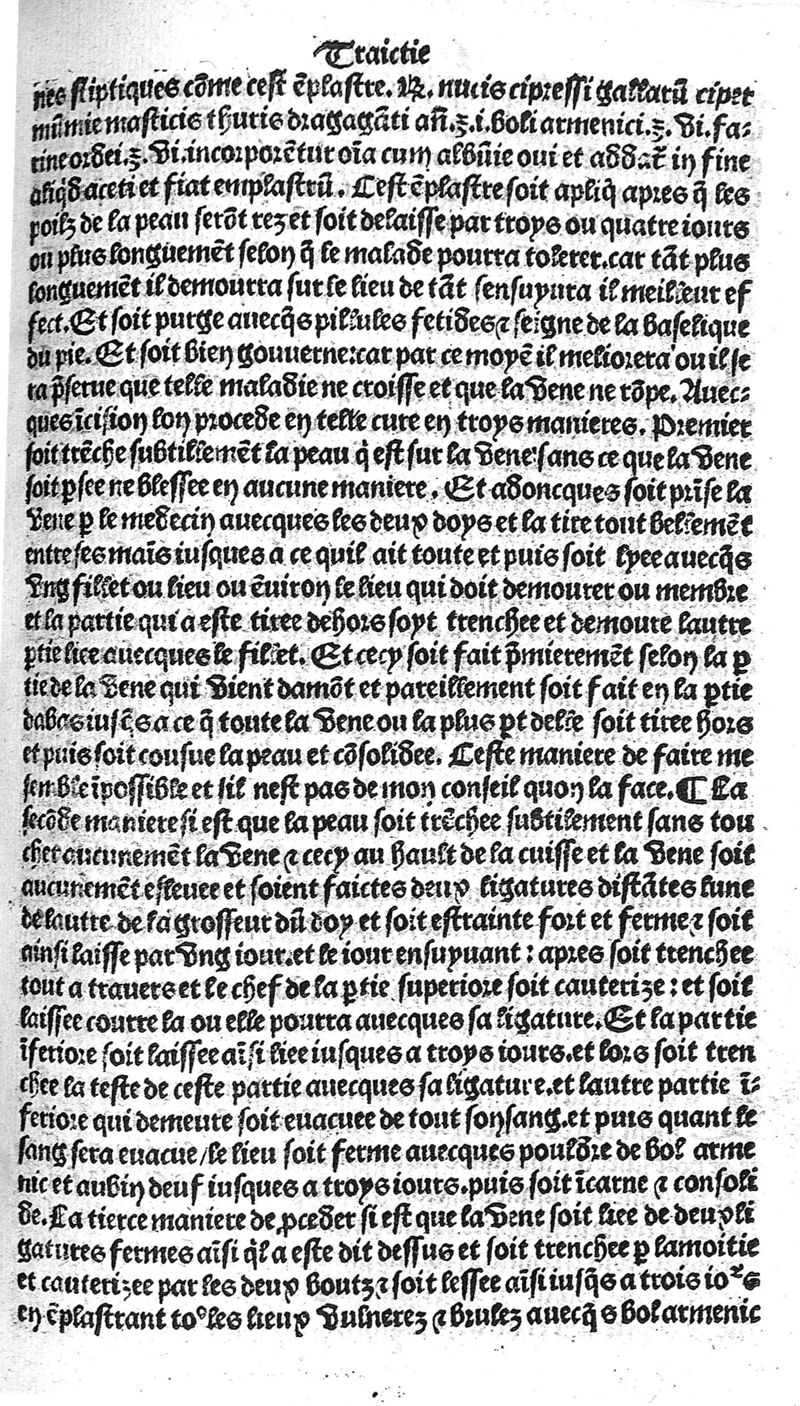 Traictie
nes stiptiques cõme cest ẽplastre. ℞. nucis cipressi gallarũ ciper
mũmie masticis thuris dragagãti añ.ʒ.i.boli armenici.ʒ.vi.fa⸗
rine ordei.ʒ.vi.incorporẽtur oĩa cum albũie oui et addat̃ in fine
aliq̃d aceti et fiat emplastrũ. Cest ẽplastre soit apliq̃ apres q̃ les
poilz de la peau serõt rez et soit delaisse par troys ou quatre iours
ou plus longuemẽt selon q̃ le malade pourra tolerer.car tãt plus
longuemẽt il demourra sur le lieu de tãt sensuyura il meilleur ef
fect.Et soit purge auecq̃s pillules fetides⁊ seigne de la baselique
du pie. Et soit bien gouuerne:car par ce moyẽ il meliorera ou il se
ra p̃serue que telle maladie ne croisse et que la vene ne rõpe. Auec⸗
ques ĩcision lon procede en telle cure en troys manieres. Premier
soit trẽche subtillemẽt la peau q̃ est sur la vene sans ce que la vene
soit ꝑsee ne blessee en aucune maniere. Et adoncques soit prĩse la
vene ꝑ le medecin auecques les deux doys et la tire tout bellemẽt
entre ses maĩs iusques a ce quil ait toute et puis soit lyee auecq̃s
vng fillet ou lieu ou ẽuiron le lieu qui doit demourer ou membre
et la partie qui a este tiree dehors soyt trenchee et demoure lautre
ꝑtie liee auecques le fillet. Et cecy soit fait p̃mieremẽt selon la ꝑ
tie de la vene qui vient damõt et pareillement soit fait en la ꝑtie
dabas iusq̃s a ce q̃ toute la vene ou la plus ꝑt delle soit tiree hors
et puis soit cousue la peau et cõsolidee. Ceste maniere de faire me
semble ĩpossible et sil nest pas de mon conseil quon la face.¶ La
secõde maniere si est que la peau soit trẽchee subtilement sans tou
cher aucunemẽt la vene ⁊ cecy au hault de la cuisse et la vene soit
aucunemẽt esleuee et soient faictes deux ligatures distãtes lune
de lautre de la grosseur dũ doy et soit estrainte fort et ferme⁊ soit
ainsi laisse par vng iour.et le iour ensuyuant : apres soit trenchee
tout a trauers et le chef de la ꝑtie superiore soit cauterize : et soit
laissee courre la ou elle pourra auecques sa ligature.Et la partie
ĩferiore soit laissee aĩsi liee iusques a troys iours.et lors soit tren
chee la teste de ceste partie auecques sa ligature.et lautre partie ĩ⸗
feriore qui demeure soit euacuee de tout son sang.et puis quant le
sang sera euacue/le lieu soit ferme auecques pouldre de bol arme
nic et aubin deuf iusques a troys iours.puis soit ĩcarne ⁊ consoli
de.La tierce maniere de ꝓceder si est que la vene soit liee de deux li
gatures fermes aĩsi q̃l a este dit dessus et soit trenchee ꝑ lamoitie
et cauterizee par les deux boutz⁊ soit lessee aĩsi iusq̃s a trois ioʳs
en ẽplastrant to⁹ les lieux vulnerez ⁊ brulez auecq̃s bol armenic